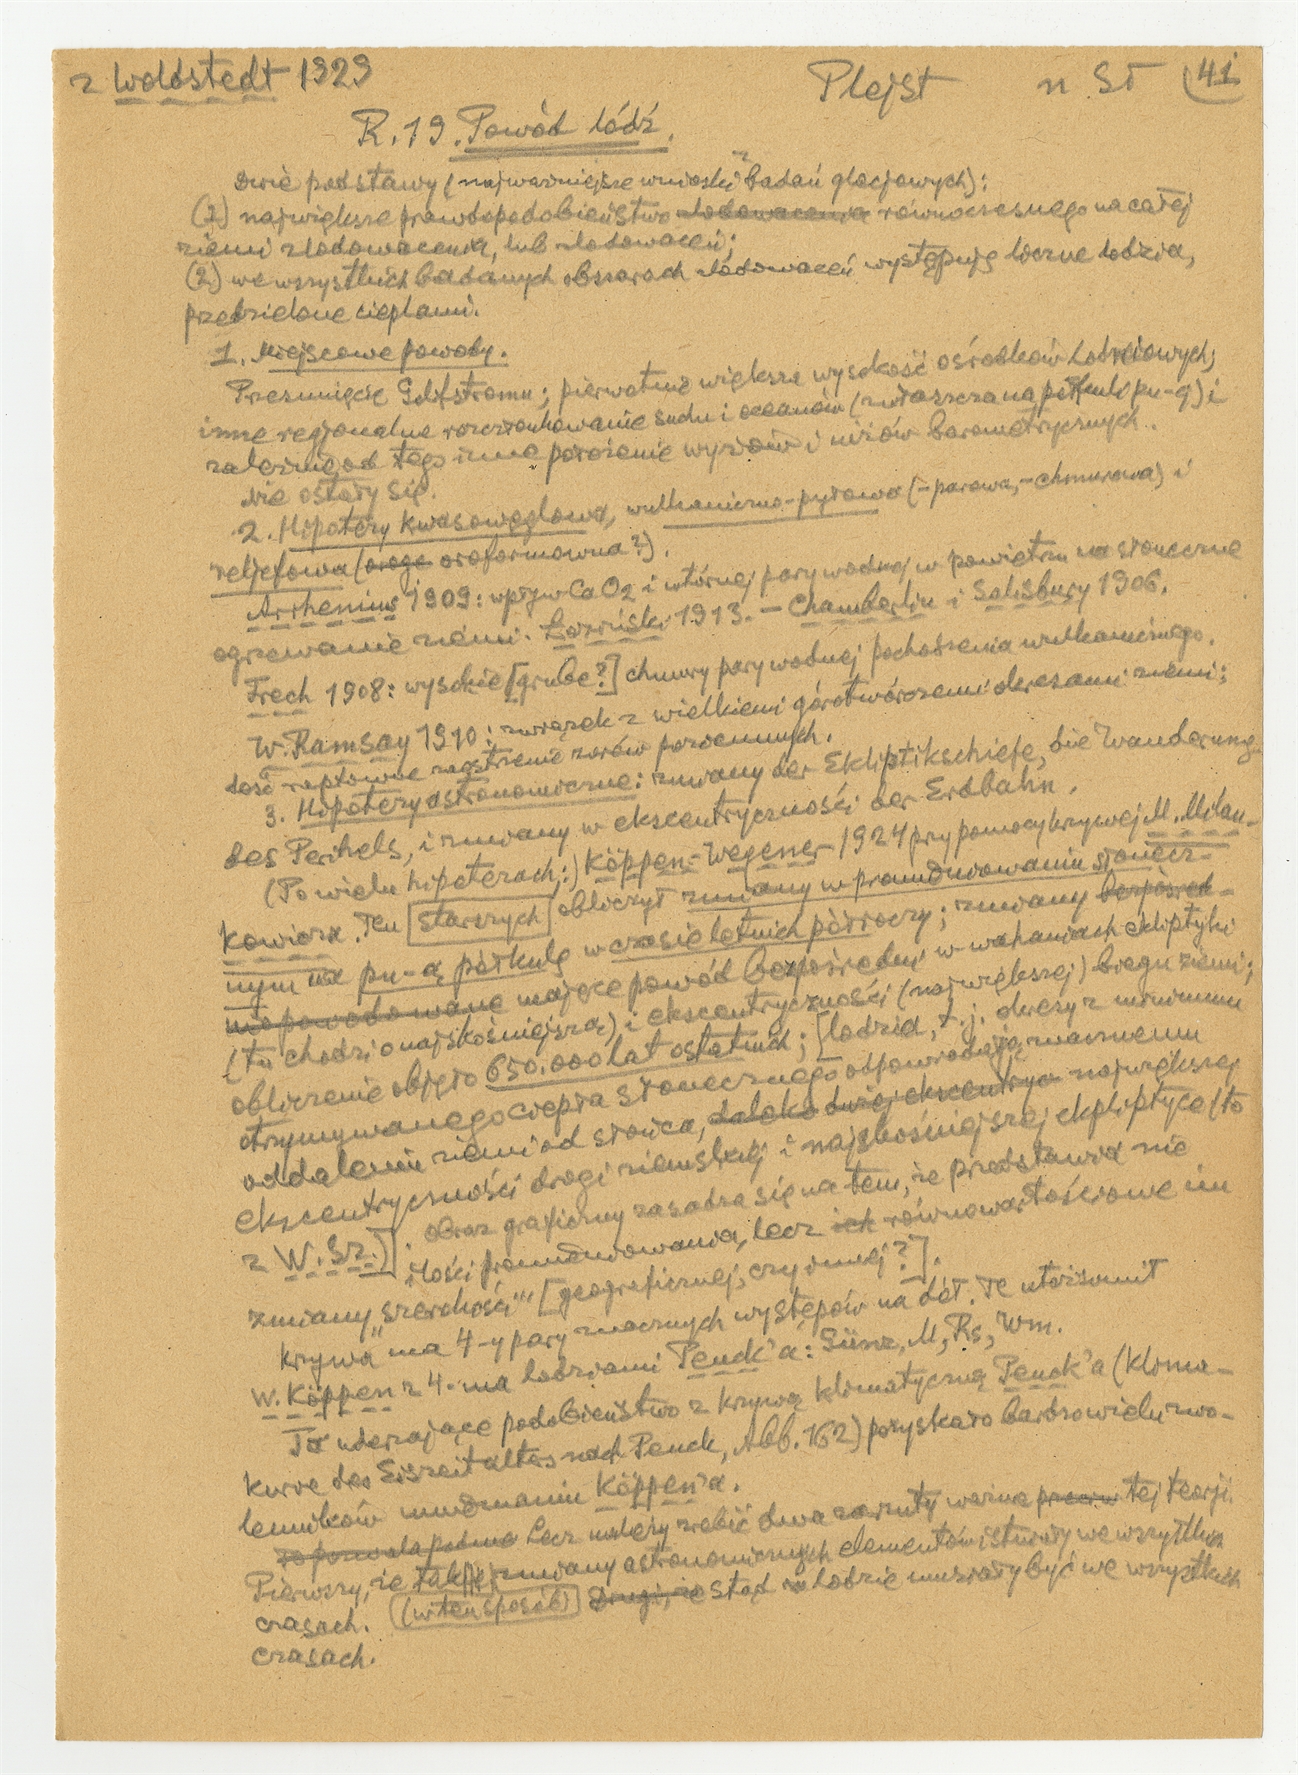 z Woldstedt 1929 Plejst n ST 41
R. 19. Powód lódź.
Dwie podstawy (najważniejsze wnioski z badań glacjowych):
(1) największe prawdopodobieństwo zlodowacenia równoczesnego na całej
ziemi zlodowacenia, lub zlodowaceń;
(2) we wszystkich badanych obszarach zlodowaceń występują liczne lodzia,
przedzielone cieplami.
1. Miejscowe powody.
Przesunięcie Golfstromu; pierwotnie większa wysokość ośrodków lodziowych;
inne regjonalne rozczłonkowanie lądu i oceanów (zwłaszcza na półkuli pn-ej) i
zależne od tego inne położenie wyżów i niżów barometrycznych.
Nie ostały się.
2. Hipotezy kwasowęglowa, wulkaniczno-pyłowa (-parowa, -chmurowa) i
reljefowa (orogo oroformowna?).
Arrhenius 1909: wpływ CaO2 i wtórnej pary wodnej w powietrzu na słoneczne
ogrzewanie ziemi. Łoziński 1913. - Chamberlin i Salisbury 1906.
Frech 1908: wysokie [grube?] chmury pary wodnej pochodzenia wulkanicznego.
W. Ramsay 1910: związek z wielkiemi górotwórczemi okresami ziemi;
dość raptowne zaostrzenie
3. Hipotezy astronomiczne: zmiany der Ekliptikschiefe, die Wanderung
des Perihels, i zmiany w ekscentryczności der Erdbahn.
(Po wielu hipotezach:) Köppen-Wegener 1924 przy pomocy krzywej M. Milan-
kowicza. Ten starszych obliczył zmiany w promieniowaniu słonecz-
nym na pn-ą półkulę w czasie letnich półroczy; zmiany bezpośred-
nio powodowane mające powód bezpośredni w wahaniach ekliptyki
(tu chodzi o najskośniejszą) i ekscentryczności (największej) biegu ziemi;
obliczenie objęło 650.000 lat ostatnich; [lodzia, t.j. okresy z minimum
otrzymywanego ciepła słonecznego odpowiadają znacznemu
oddaleniu ziemi od słońca, daleko dużej ekscentrycz największej
ekscentryczności drogi ziemskiej i najskośniejszej ekliptyce (to
z W. Sz.)]. obraz graficzny zasadza się na tem, że przedstawia nie
ilości promieniowania, lecz ich równowartościowe im
zmiany „szerokości" [geograficznej, czy innej?].
Krzywa ma 4-y pary znacznych występów na dół. Te utożsamił
W. Köppen z 4-ma lodziami Penck'a: Günz, M, Rs, Wm.
To uderzające podobieństwo z krzywą klimatyczną Penck'a (Klima-
kurve des Eiszeitalters nach Penck, Abb. 162) pozyskało bardzo wielu zwo-
lenników mniemaniu Köppen'a.
Lecz należy zrobić dwa zarzuty ważne przeciw tej teorji.
Pierwszy, że takież zmiany astronomicznych elementów istniały we wszystkich
czasach. (w ten sposób) Drugi, że stąd lodzie musiały być we wszystkich
czasach.